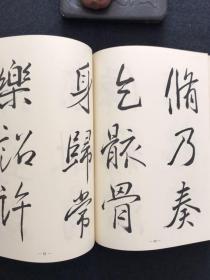 脩乃奏
乞骸骨
身歸常
樂詔許